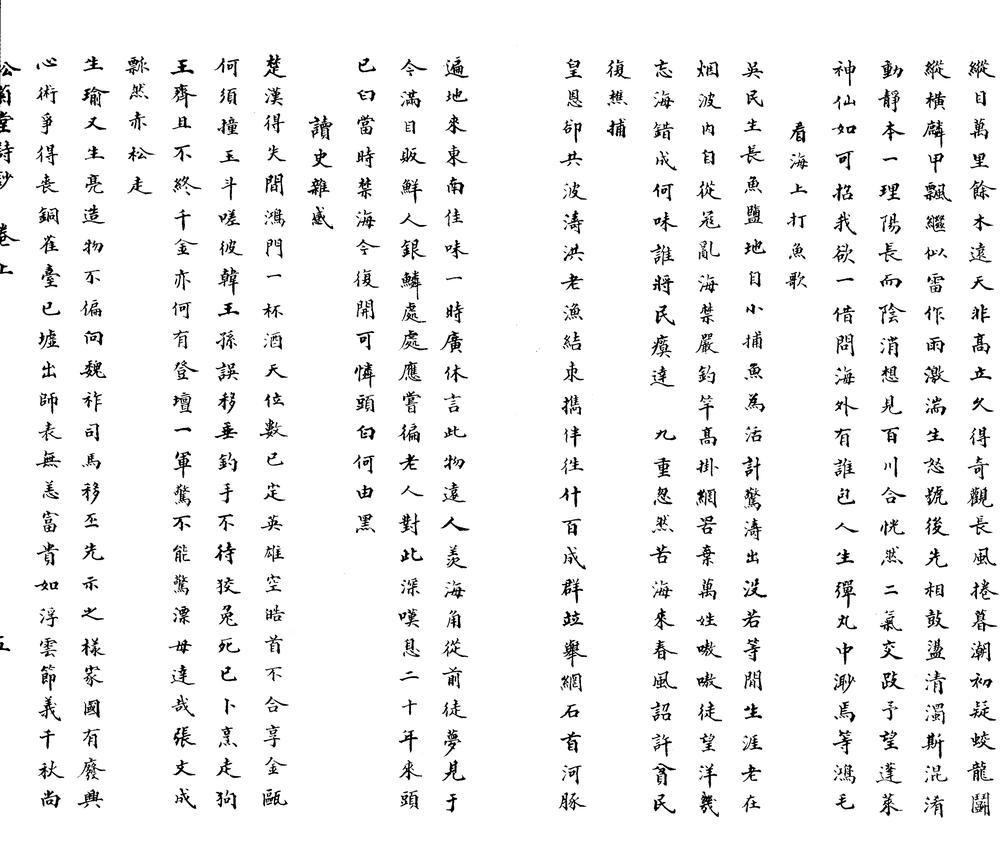 縱目萬里餘水遠天非高立久得奇觀長風捲暮潮初疑蛟龍鬭
縱橫麟甲飄繼似雷作雨激湍生怒號後先相鼓盪清濁斯混淆
動靜本一理陽長而陰消想見百川合恍然二氣交跂予望蓬萊
神仙如可招我欲一借問海外有誰包人生彈丸中渺焉等鴻毛
看海上打魚歌
吳民生長魚鹽地自小捕魚為活計驚濤出沒若等閒生涯老在
烟波內自從冦亂海禁嚴釣竿高掛網罟棄萬姓嗷嗷徒望洋幾
忘海錯成何味誰將民瘼達　九重忽然苦海來春風詔許貧民
復樵捕
皇恩卻共波濤洪老漁結束攜伴徃什百成群竝舉網石首河豚
遍地來東南佳味一時廣休言此物遠人羡海角從前徒夢見于
今滿目販鮮人銀鱗處處應嘗徧老人對此深嘆息二十年來頭
已白當時禁海令復開可憐頭白何由黑
讀史雜感
楚漢得失間鴻門一杯酒天位數已定英雄空皓首不合享金甌
何須撞玉斗嗟彼韓王孫誤移垂釣手不待狡兔死已卜烹走狗
王齊且不終千金亦何有登壇一軍驚不能驚漂母達哉張文成
飄然赤松走
生瑜又生亮造物不偏向魏祚司馬移丕先示之樣家國有廢興
心術爭得喪銅雀臺已墟出師表無恙富貴如浮雲節義千秋尚
松蔭堂詩鈔　卷上　五